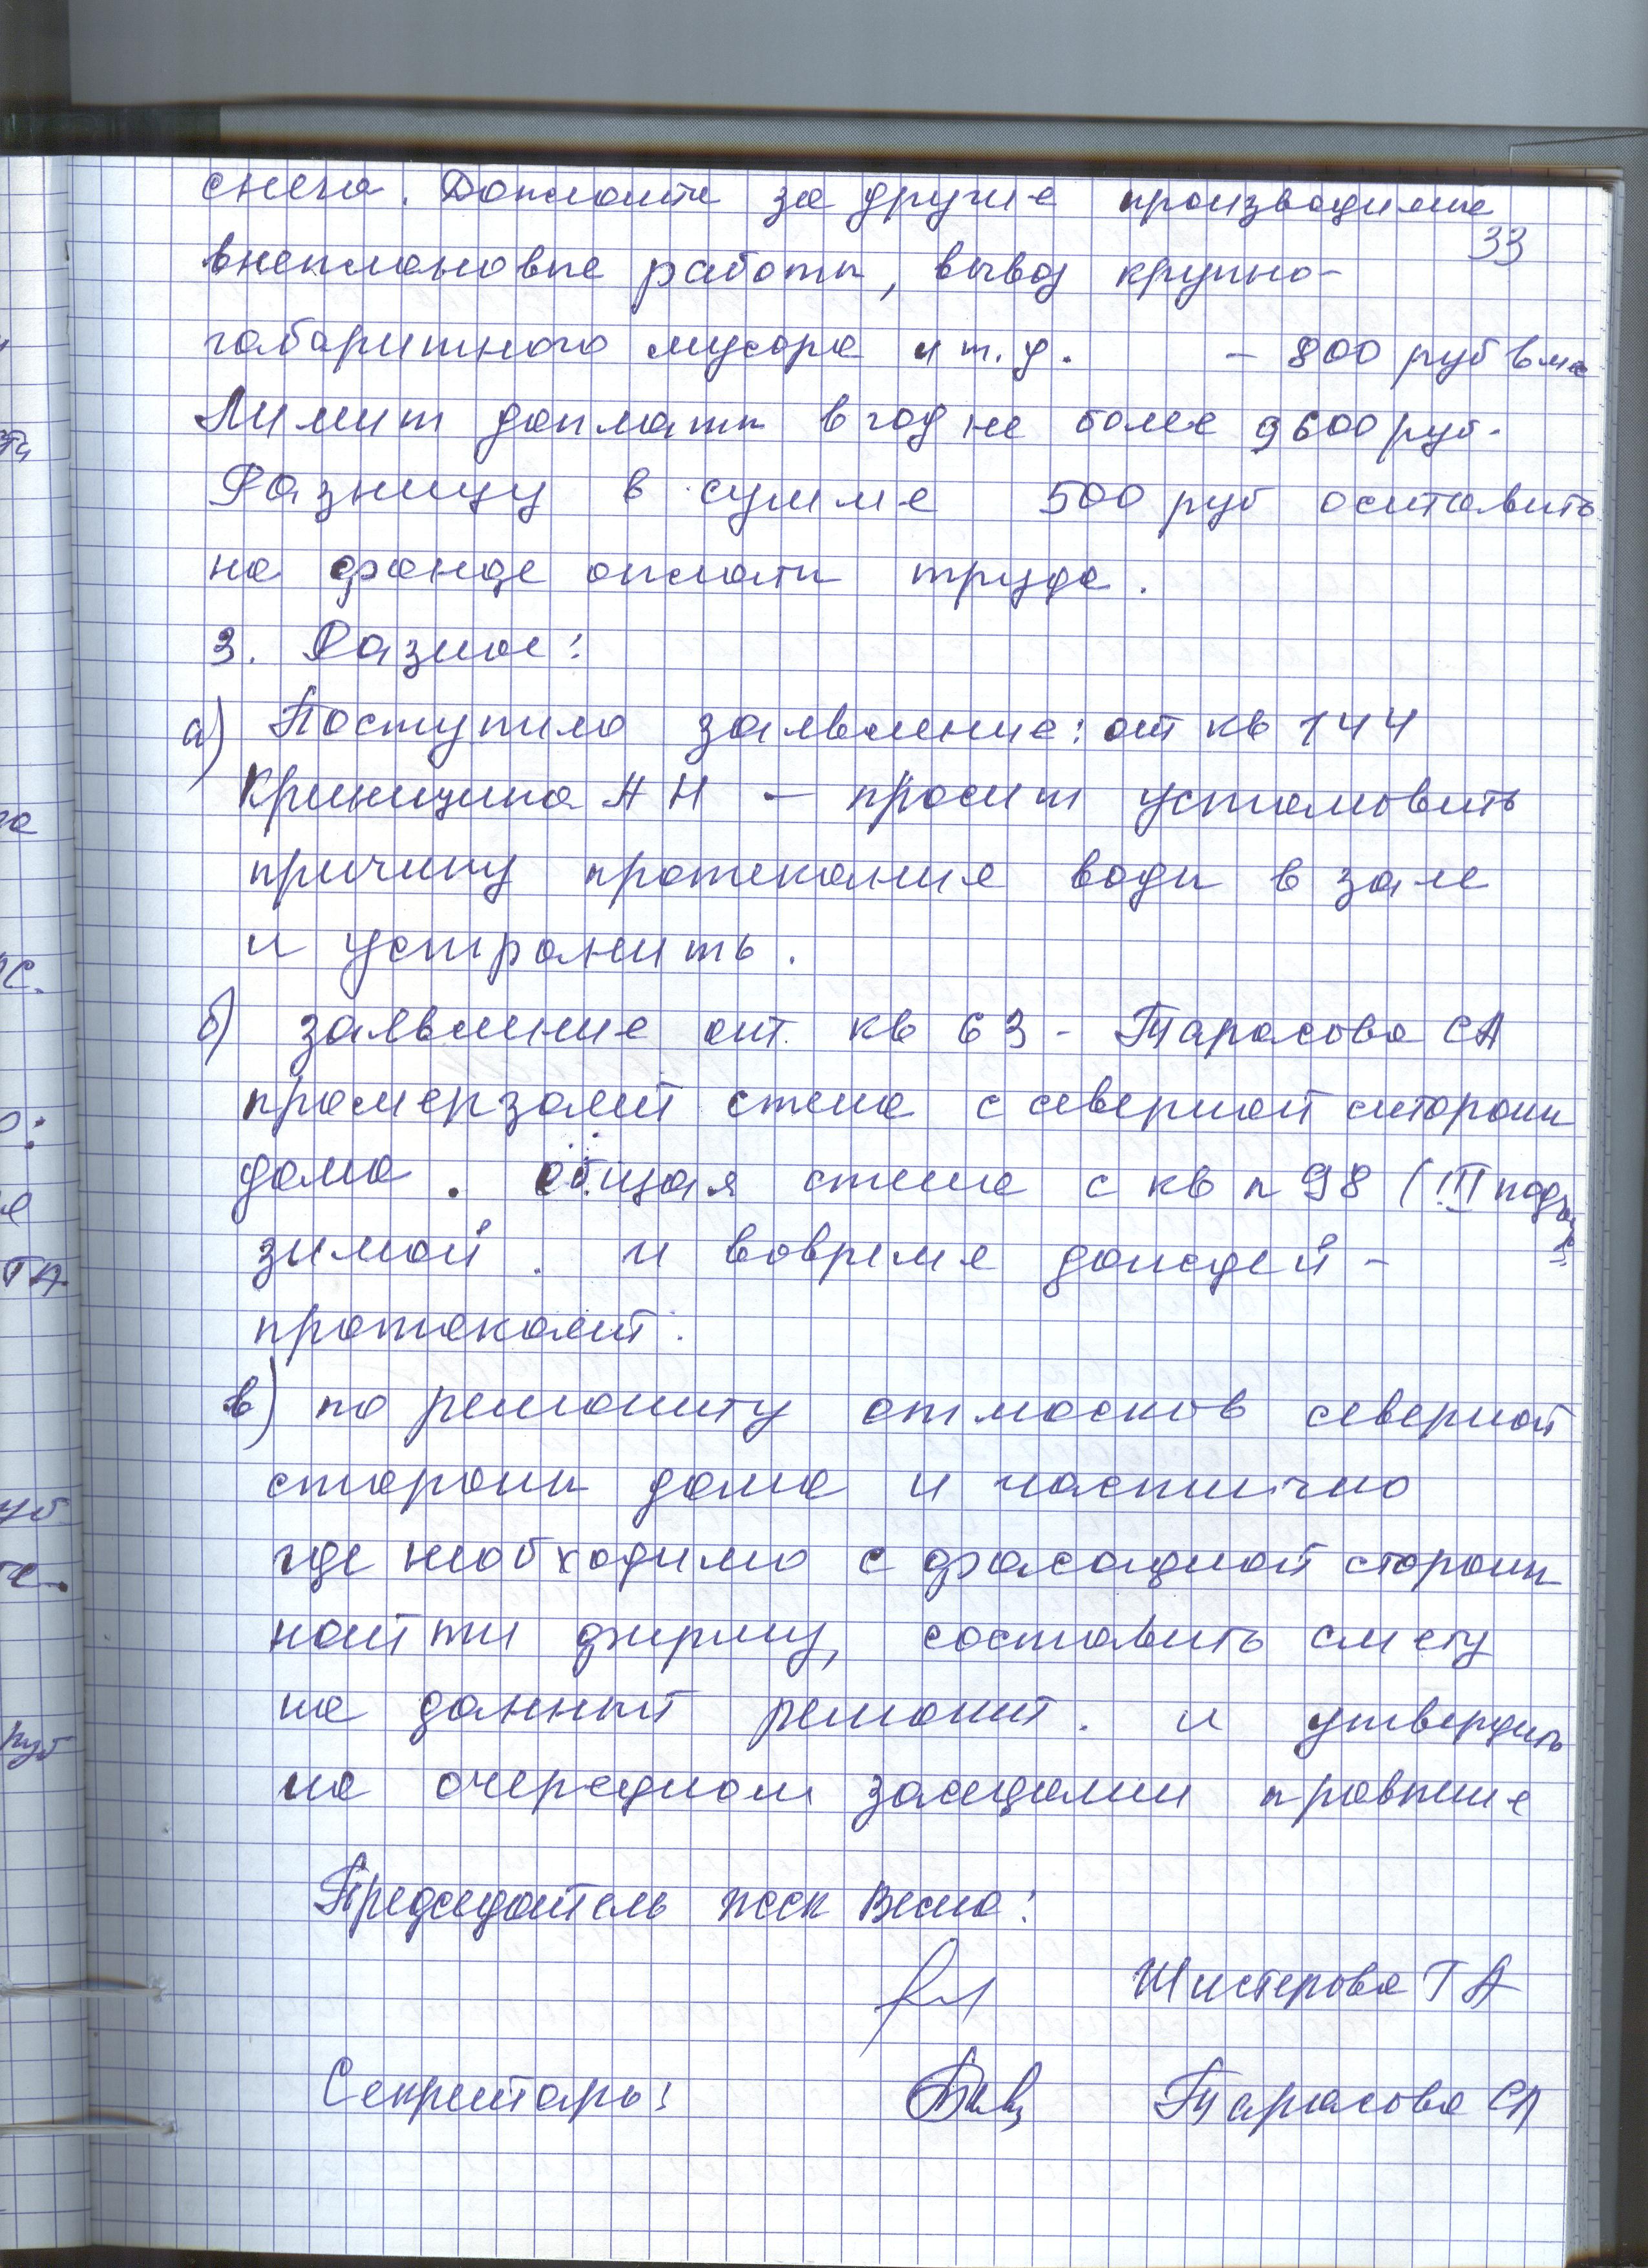 снега. Доплата за другие производимые
33
внеплановые работы, вывоз крупно-
габаритного мусора и т.д. - 800 руб в мс
Лимит доплаты в год не более 9600 руб.
Разницу в сумме 500 руб оставить
на фонде оплаты труда.
3. Разное:
а) Поступило заявление: от кв 144
Криницина НН - просит установить
причину протекание воды в зале
и устранить.
б) заявление от. кв 63 - Тарасова СА
промерзает стена с северной стороны
дома. общая стена с кв n 98 (III подъезд)
зимой. и вовремя дождей -
протекает.
в) по ремонту отмосков северной
стороны дома и частично
где необходимо с фасадной стороны
найти фирму, составить смету
на данный ремонт. и утвердить
на очередном заседании правление
Председатель ЖСК Весна:
Шистерова Т А
Секретарь:
Тарасова СА